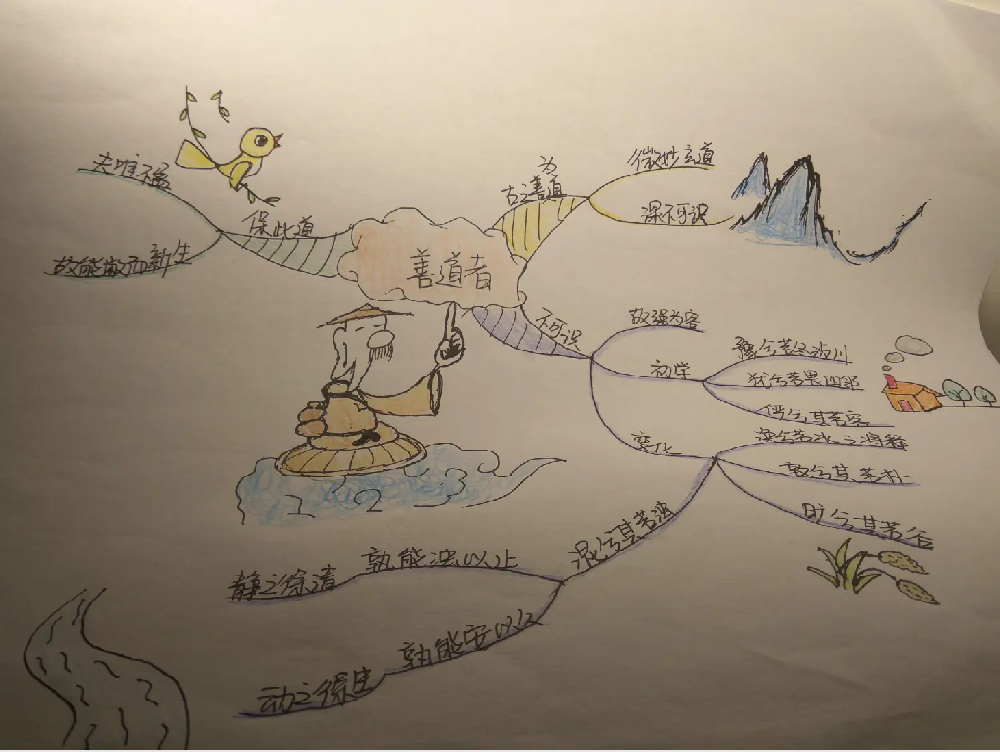 善道者
为
古之善道
微妙玄道
深不可识
不可识
故强为容
初学
豫兮若冬涉川
犹兮若畏四邻
俨兮其若客
变化
涣兮若冰之将释
敦兮其若朴
旷兮其若谷
混兮其若浊
孰能浊以止
静之徐清
孰能安以久
动之徐生
保此道
夫唯不盈
故能敝而新生